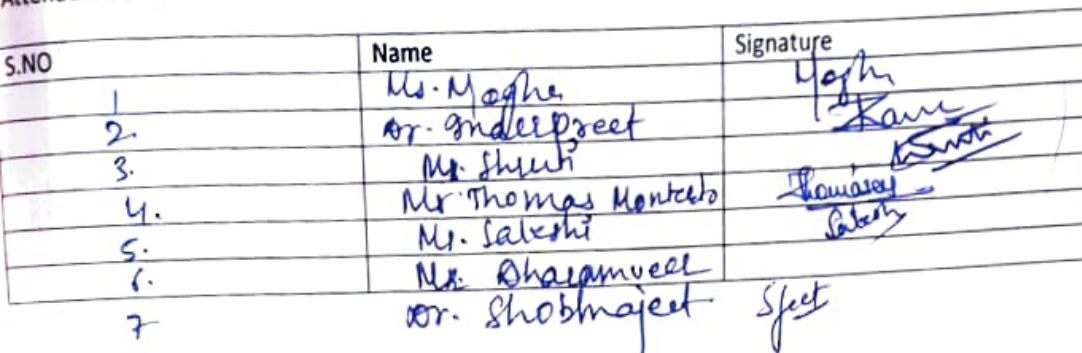 S.NO Name Signature
1 Ms. Megha Megha
2. Dr. Inderpreet Kaur
3. Ms. Shruti Shruti
4. Mr Thomas Monteito Thomas
5. Ms. Sakshi Sakshi
6. Mr. Dharamveer
7 Dr. Shobhnajeet Sjeet